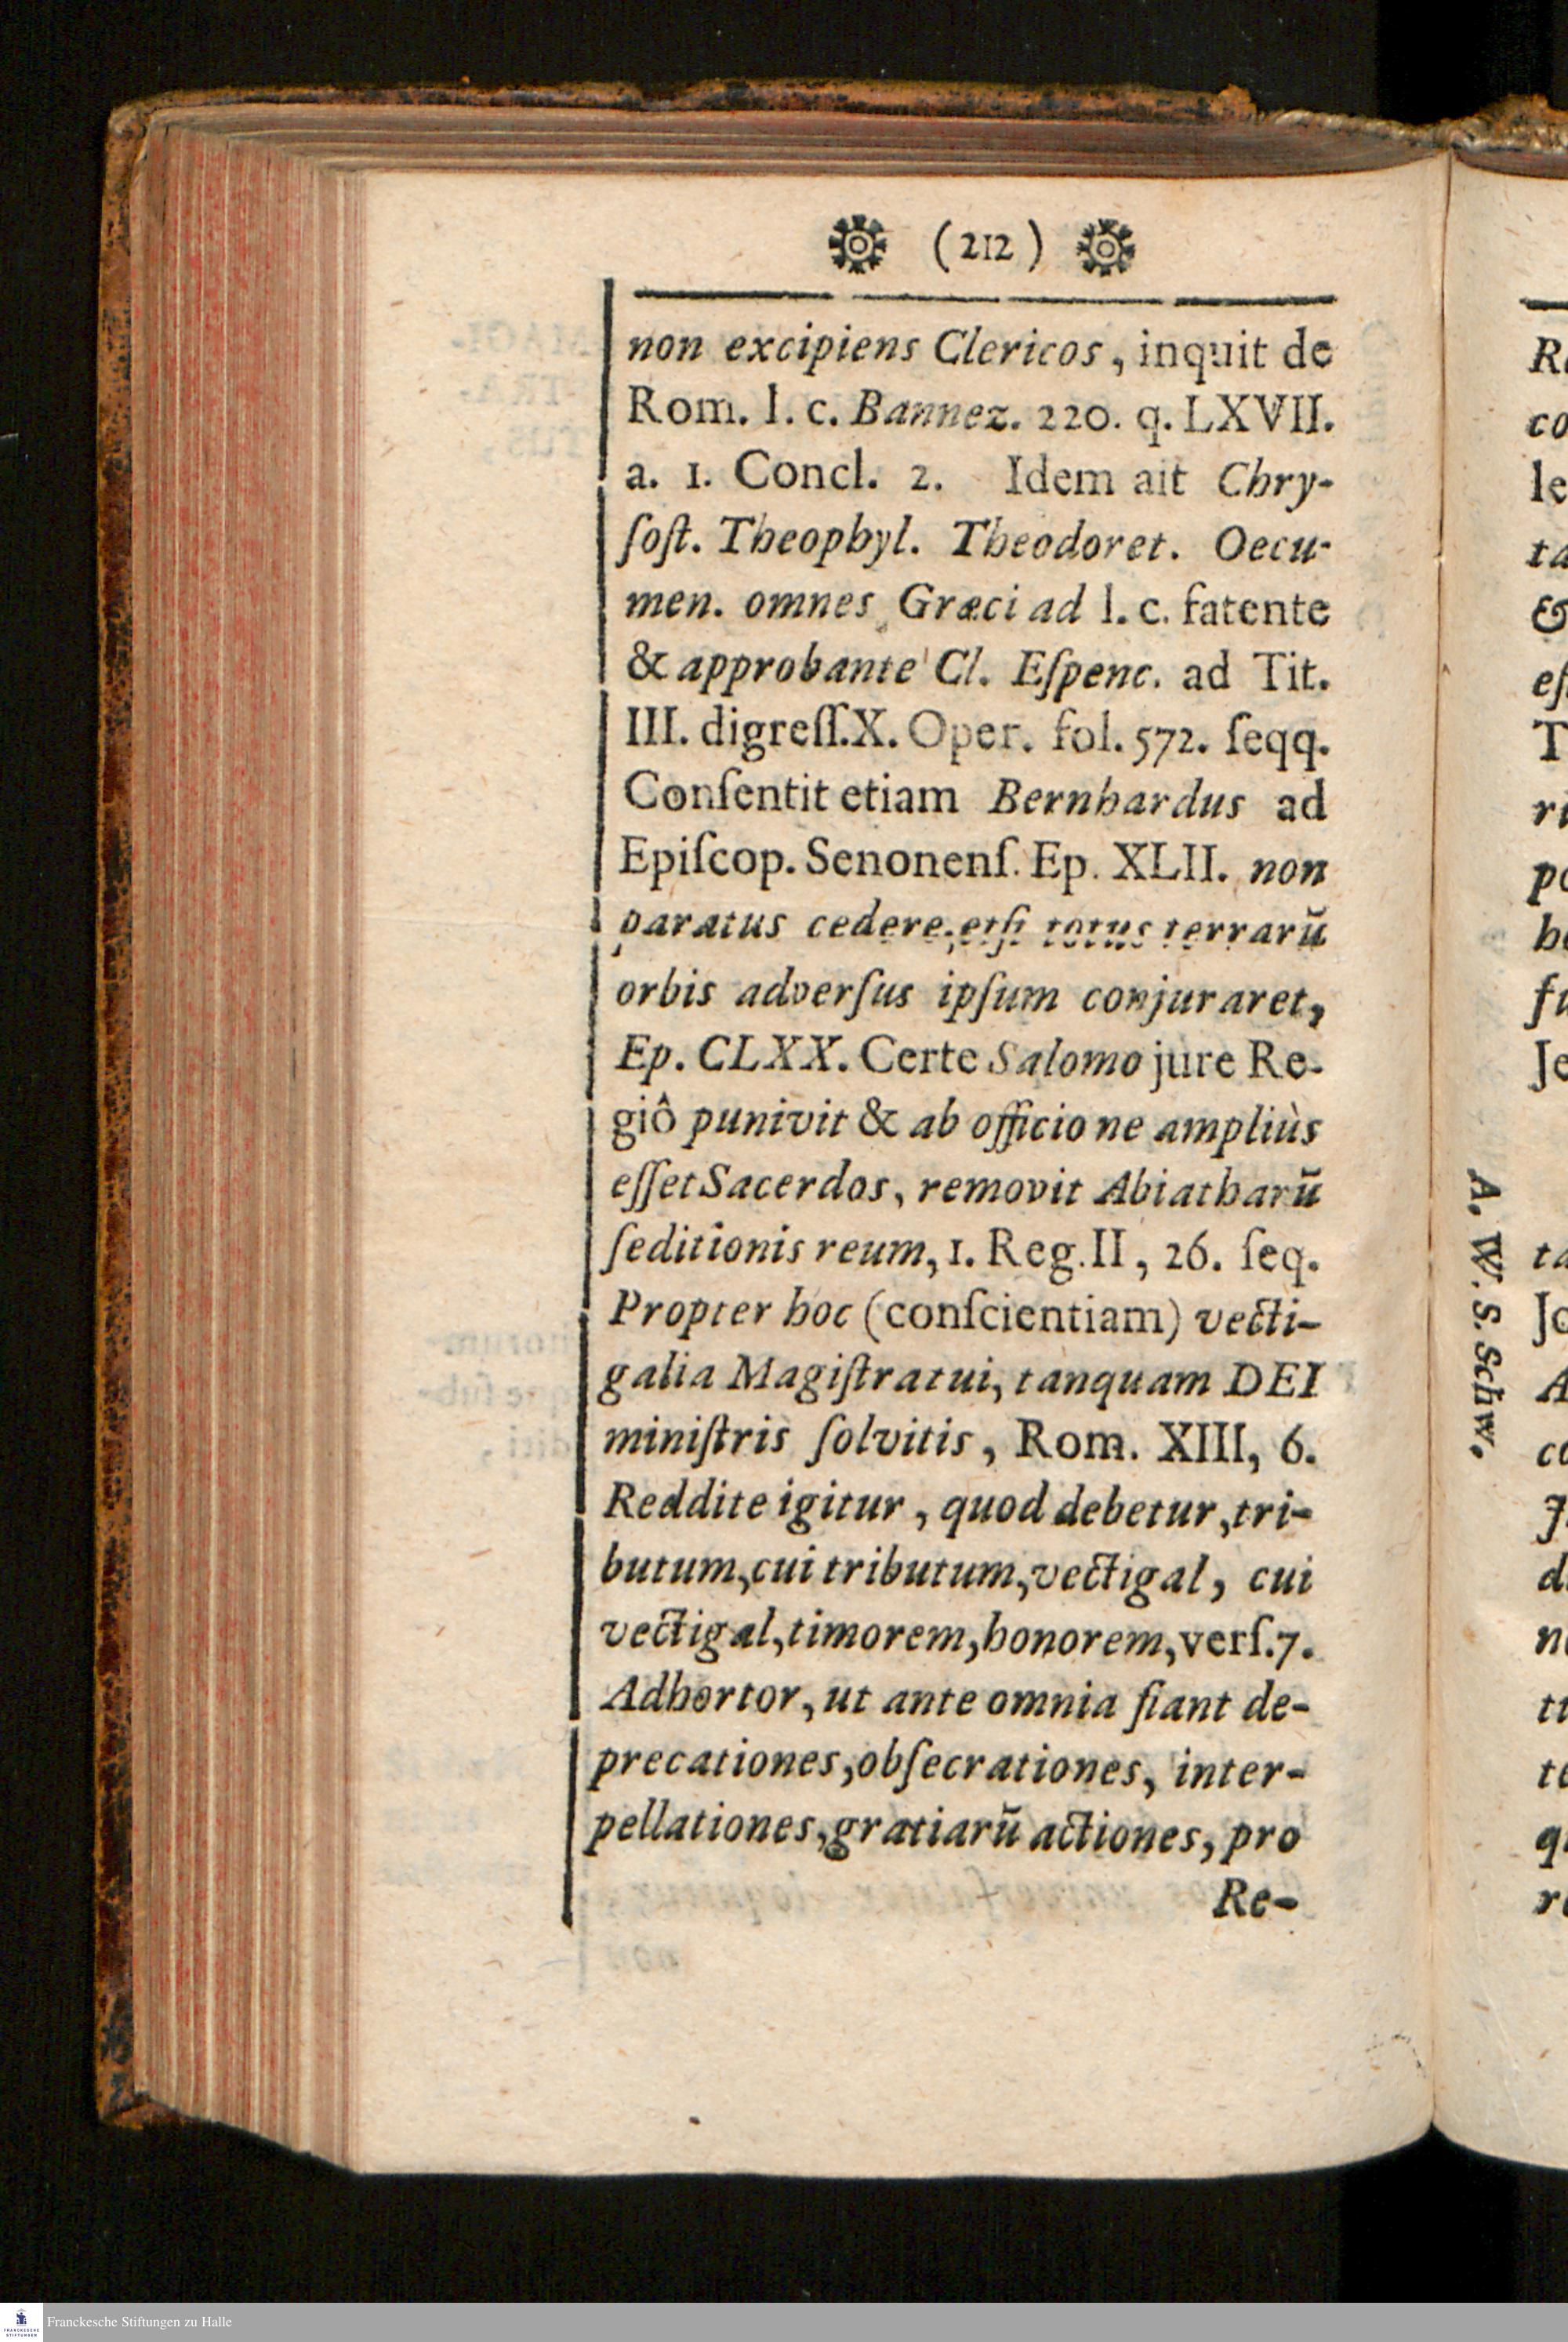 (212)
non excipiens Clericos, inquit de
Rom. l. c. Bannez. 220. q. LXVII.
a. 1. Concl. 2. Idem ait Chry-
ſoſt. Theophyl. Theodoret. Oecu-
men. omnes Græci ad l. c. fatente
& approbante Cl. Eſpenc. ad Tit.
III. digreſſ. X. Oper. fol. 572. ſeqq.
Conſentit etiam Bernhardus ad
Epiſcop. Senonenſ. Ep. XLII. non
paratus cedere, etſi totus terrarū
orbis adverſus ipſum conjuraret,
Ep. CLXX. Certe Salomo jure Re-
giô punivit & ab officio ne ampliùs
eſſet Sacerdos, removit Abiatharū
ſeditionis reum, 1. Reg. II, 26. ſeq.
Propter hoc (conſcientiam) vecti-
galia Magiſtratui, tanquam DEI
miniſtris ſolvitis, Rom. XIII, 6.
Reddite igitur, quod debetur, tri-
butum, cui tributum, vectigal, cui
vectigal, timorem, honorem, verſ. 7.
Adhortor, ut ante omnia fiant de-
precationes, obſecrationes, inter-
pellationes, gratiarū actiones, pro
Re-
A. W. S. Schw.
Franckesche Stiftungen zu Halle